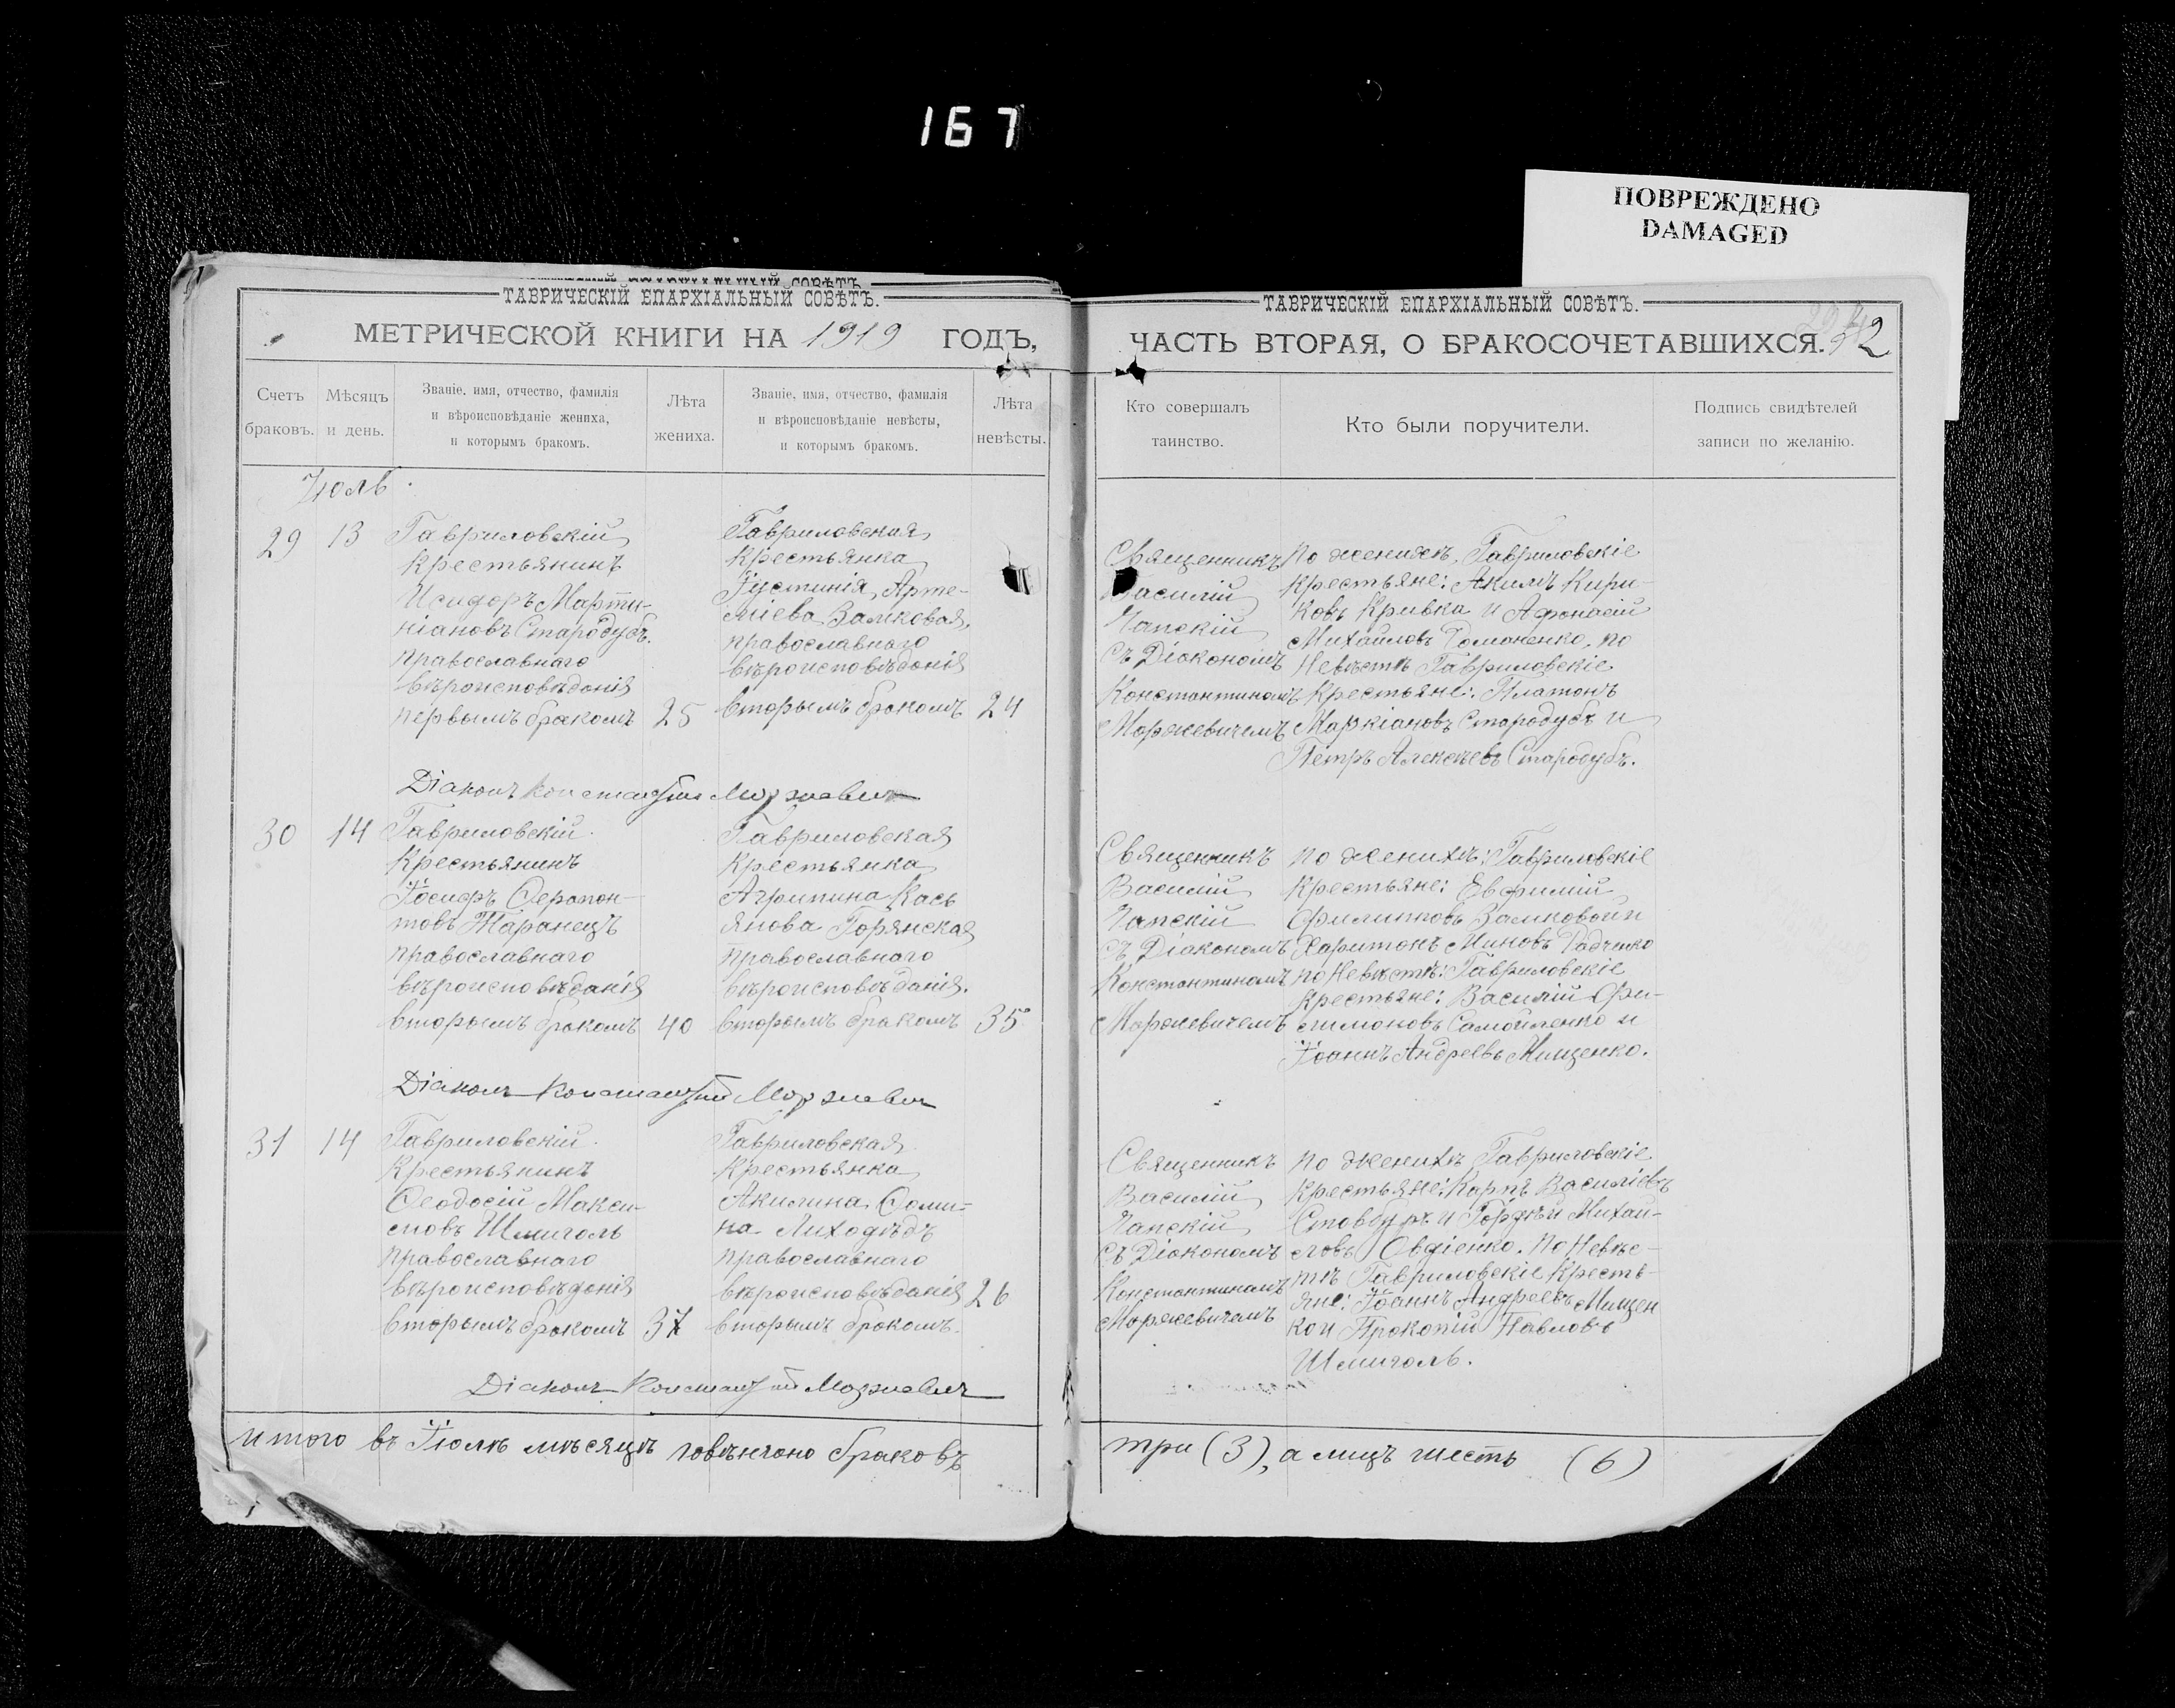 167
ПОВРЕЖДЕНО
DAMAGED
ТАВРИЧЕСКІЙ ЕПАРХІАЛЬНЫЙ СОВѢТЪ.
МЕТРИЧЕСКОЙ КНИГИ НА 1919 ГОДЪ,
Счетъ браковъ.
Мѣсяцъ и день.
Званіе, имя, отчество, фамилія
и вѣроисповѣданіе жениха,
и которымъ бракомъ.
Лѣта
жениха.
Званіе, имя, отчество, фамилія
и вѣроисповѣданіе невѣсты,
и которымъ бракомъ.
Лѣта
невѣсты.
Іюль
29 13
Гавриловскій
крестьянинъ
Исидоръ Марти-
ніановъ Стародубъ.
православнаго
вѣроисповѣданія
первымъ бракомъ 25
Гавриловская
крестьянка
Іустинія Арте-
міева Замковая,
православнаго
вѣроисповѣданія
вторымъ бракомъ 24
Діаконъ Константинъ Моржевичъ
30 14
Гавриловскій
крестьянинъ
Іосифъ Ѳерапон-
товъ Таранецъ
православнаго
вѣроисповѣданія
вторымъ бракомъ 40
Гавриловская
крестьянка
Агрипина Кась
янова Горянская
православнаго
вѣроисповѣданія.
вторымъ бракомъ 35
Діаконъ Константинъ Моржевичъ
31 14
Гавриловскій
крестьянинъ
Ѳеодосій Макси-
мовъ Шмиголь
православнаго
вѣроисповѣданія
вторымъ бракомъ 37
Гавриловская
крестьянка
Акилина Ѳоми-
на Лиходѣдъ
православнаго
вѣроисповѣданія 26
вторымъ бракомъ.
Діаконъ Константинъ Моржевичъ
итого въ Іюлѣ мѣсяцѣ повѣнчано браковъ
ТАВРИЧЕСКІЙ ЕПАРХІАЛЬНЫЙ СОВѢТЪ.
ЧАСТЬ ВТОРАЯ, О БРАКОСОЧЕТАВШИХСЯ.
Кто совершалъ
таинство.
Кто были поручители.
Подпись свидѣтелей
записи по желанію.
Священникъ
Василій
Чапскій
съ Діакономъ
Константиномъ
Моржевичемъ
по женихѣ, Гавриловскіе
крестьяне: Акимъ Кири-
ковъ Кривка и Афонасій
Михайловъ Романенко, по
Невѣстѣ Гавриловскіе
Крестьяне: Платонъ
Маркіановъ Стародубъ и
Петръ Алексѣевъ Стародубъ.
Священникъ
Василій
Чапскій
съ Діакономъ
Константиномъ
Моржевичемъ
по женихѣ: Гавриловскіе
крестьяне: Евфимій
Филипповъ Замковой и
Харитонъ Миновъ Радченко
по Невѣстѣ: Гавриловскіе
крестьяне: Василій Фи-
лимоновъ Самойленко и
Іоаннъ Андреевъ Мищенко.
Священникъ
Василій
Чапскій
съ Діакономъ
Константиномъ
Моржевичемъ
по женихѣ Гавриловскіе
крестьяне: Карпъ Василіевъ
Стовбуръ и Гордѣй Михай-
ловъ Овдіенко. По Невѣс-
тѣ Гавриловскіе Кресть-
яне: Іоаннъ Андреевъ Мищен
ко и Прокопій Павловъ
Шмиголь.
три (3), а лицъ шесть (6)